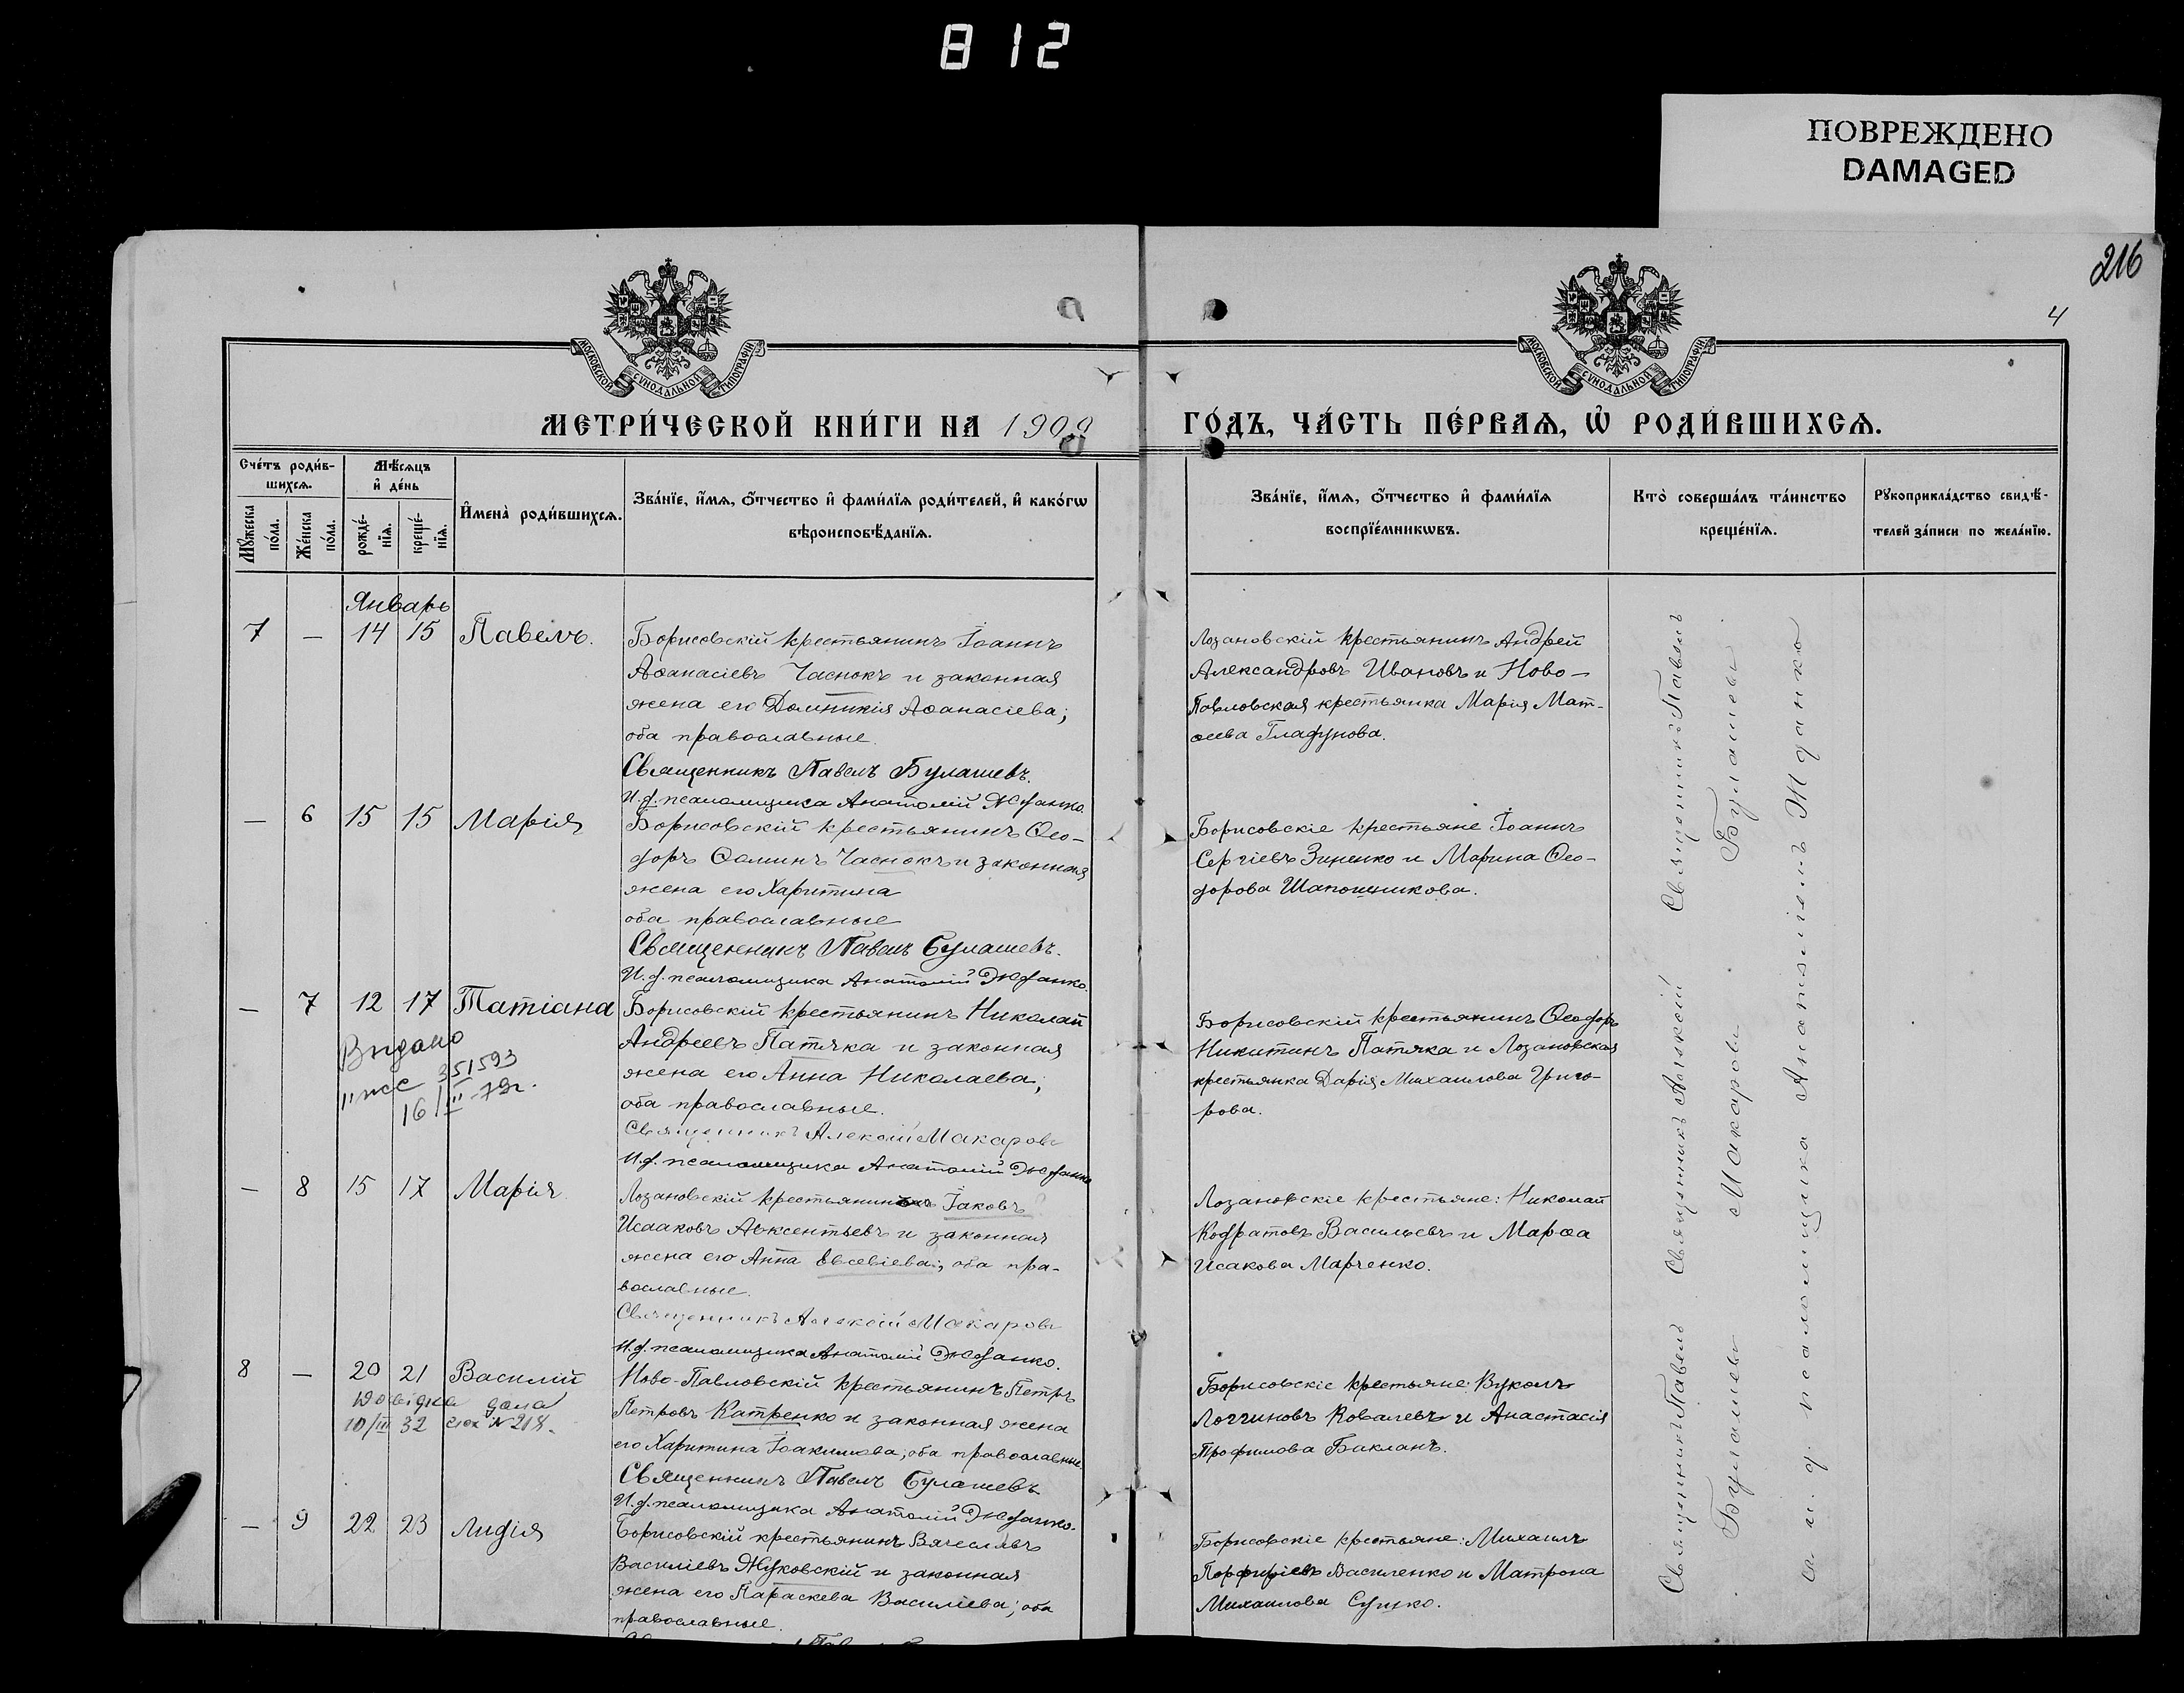 812
ПОВРЕЖДЕНО
DAMAGED
216
4
МОСКОВСКОЙ СѴНОДАЛЬНОЙ ТИПОГРАФІИ
МОСКОВСКОЙ СѴНОДАЛЬНОЙ ТИПОГРАФІИ
МЕТРИ́ЧЕСКОЙ КНИ́ГИ НА 1909 ГО́ДЪ, ЧА́СТЬ ПЕ́РВАѦ, Ѡ҆ РОДИ́ВШИХСѦ.
Сче́тъ роди́в-
шихсѧ.
Мꙋ́жеска по́ла.
Же́нска по́ла.
Мѣ́сѧцъ
и҆ де́нь
рожде́-
нїѧ.
креще́-
нїѧ.
И҆мена̀ роди́вшихсѧ.
Зва́нїе, и҆́мѧ, ѻ҆́тчество и҆ фами́лїѧ роди́телей, и҆ како́гѡ
вѣроисповѣ́данїѧ.
Зва́нїе, и҆́мѧ, ѻ҆́тчество и҆ фами́лїѧ
воспрїе́мникѡвъ.
Кто̀ соверша́лъ та́инство
креще́нїѧ.
Рꙋкоприкла́дство свидѣ́-
телей за́писи по жела́нїю.
Январь
7 — 14 15 Павелъ.
Борисовскій крестьянинъ Іоаннъ
Аѳанасіевъ Часнокъ и законная
жена его Домникія Аѳанасіева;
оба православные.
Священникъ Павелъ Булашевъ.
И.д. псаломщика Анатолій Жданко.
Лозановскій крестьянинъ Андрей
Александровъ Ивановъ и Ново-
Павловская крестьянка Марія Мат-
ѳеева
— 6 15 15 Марія
Борисовскій крестьянинъ Ѳео-
доръ Ѳоминъ Часнокъ и законная
жена его Харитина
оба православные
Священникъ Павелъ Булашевъ.
И.д. псаломщика Анатолій Жданко.
Борисовскіе крестьяне Іоаннъ
Сергіевъ Зиненко и Марина Ѳео-
дорова Шапошникова.
— 7 12 17 Татіана
Видано
351593
16/III-79г.
Борисовскій крестьянинъ Николай
Андреевъ Патяка и законная
жена его Анна Николаева;
оба православные.
Священникъ Алексій Макаровъ
И.д. псаломщика Анатолій Жданко
Борисовскій крестьянинъ Ѳеодоръ
Никитинъ Патяка и Лозановская
крестьянка Дарія Михаилова Григо-
рова.
— 8 15 17 Марія
Лозановскій крестьянинъ Іаковъ
Исааковъ Авксентьевъ и законная
жена его Анна Евсевіева; оба пра-
вославные.
Священникъ Алексій Макаровъ
И.д. псаломщика Анатолій Жданко.
Лозановскіе крестьяне: Николай
Кодратовъ Васильевъ и Марѳа
Исакова Марченко.
8 — 20 21 Василій
Довідка дана
10/III 32 № 218.
Ново-Павловскій крестьянинъ Петръ
Петровъ Катренко и законная жена
его Харитина Іоакимова; оба православные.
Священникъ Павелъ Булашевъ
И.д. псаломщика Анатолій Жданко.
Борисовскіе крестьяне: Вуколъ
Логгиновъ Ковалевъ и Анастасія
Трофимова Бакланъ.
— 9 22 23 Лидія
Борисовскій крестьянинъ Вячеславъ
Василіевъ Жуковскій и законная
жена его Параскева Василіева; оба
православные.
Борисовскіе крестьяне: Михаилъ
Порфиріевъ Василенко и Матрона
Михаилова Сушко.
Священникъ Павелъ Священникъ Алексій Священникъ Павелъ
Булашевъ Макаровъ Булашевъ
съ и. д. псаломщика Анатоліемъ Жданко